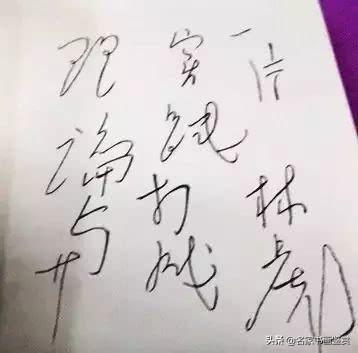 理論與
实践打成
一片 林彪
头条 @名家书画鉴赏